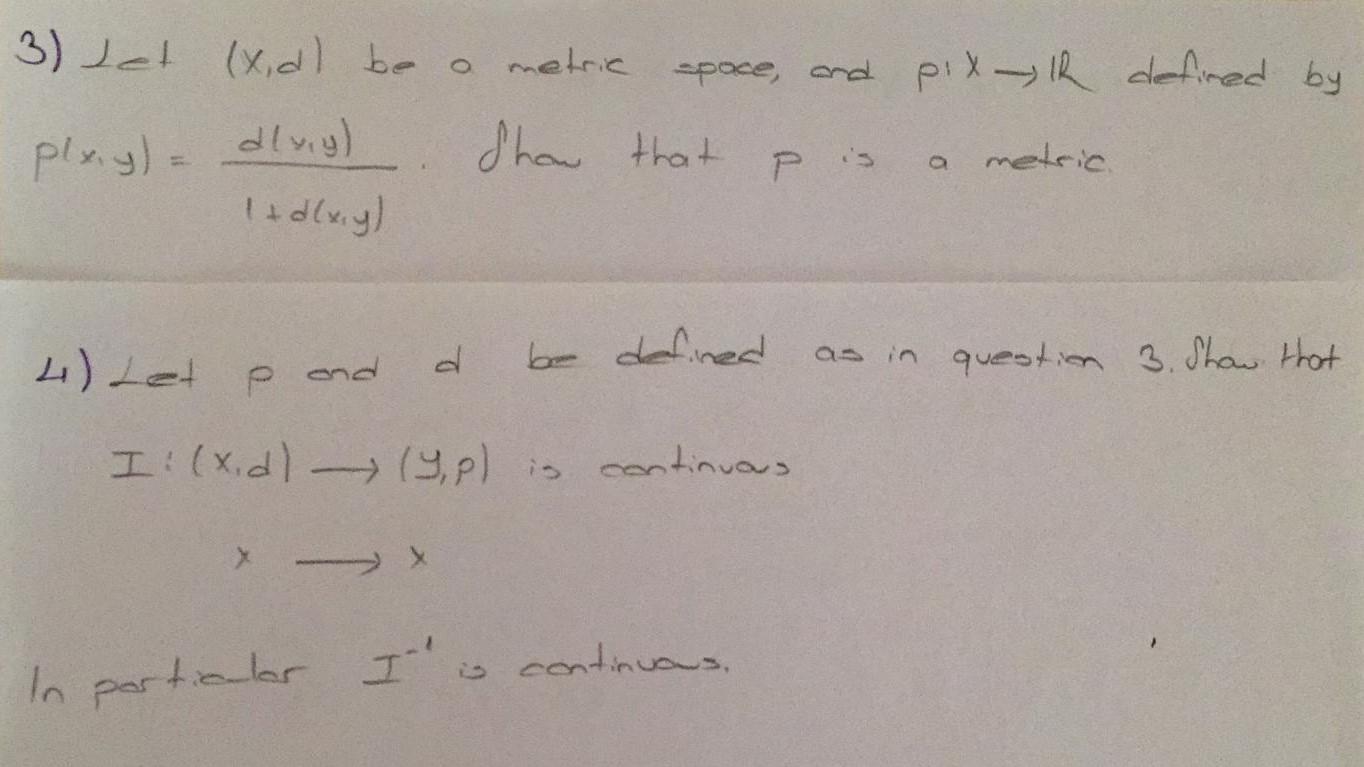 3) Let (X,d) be a metric space, and p: X → ℝ defined by
p(x,y) = d(x,y) / 1+d(x,y) . Show that p is a metric.
4) Let p and d be defined as in question 3. Show that
I : (X,d) → (Y,p) is continuous
x → x
In particular I⁻¹ is continuous.